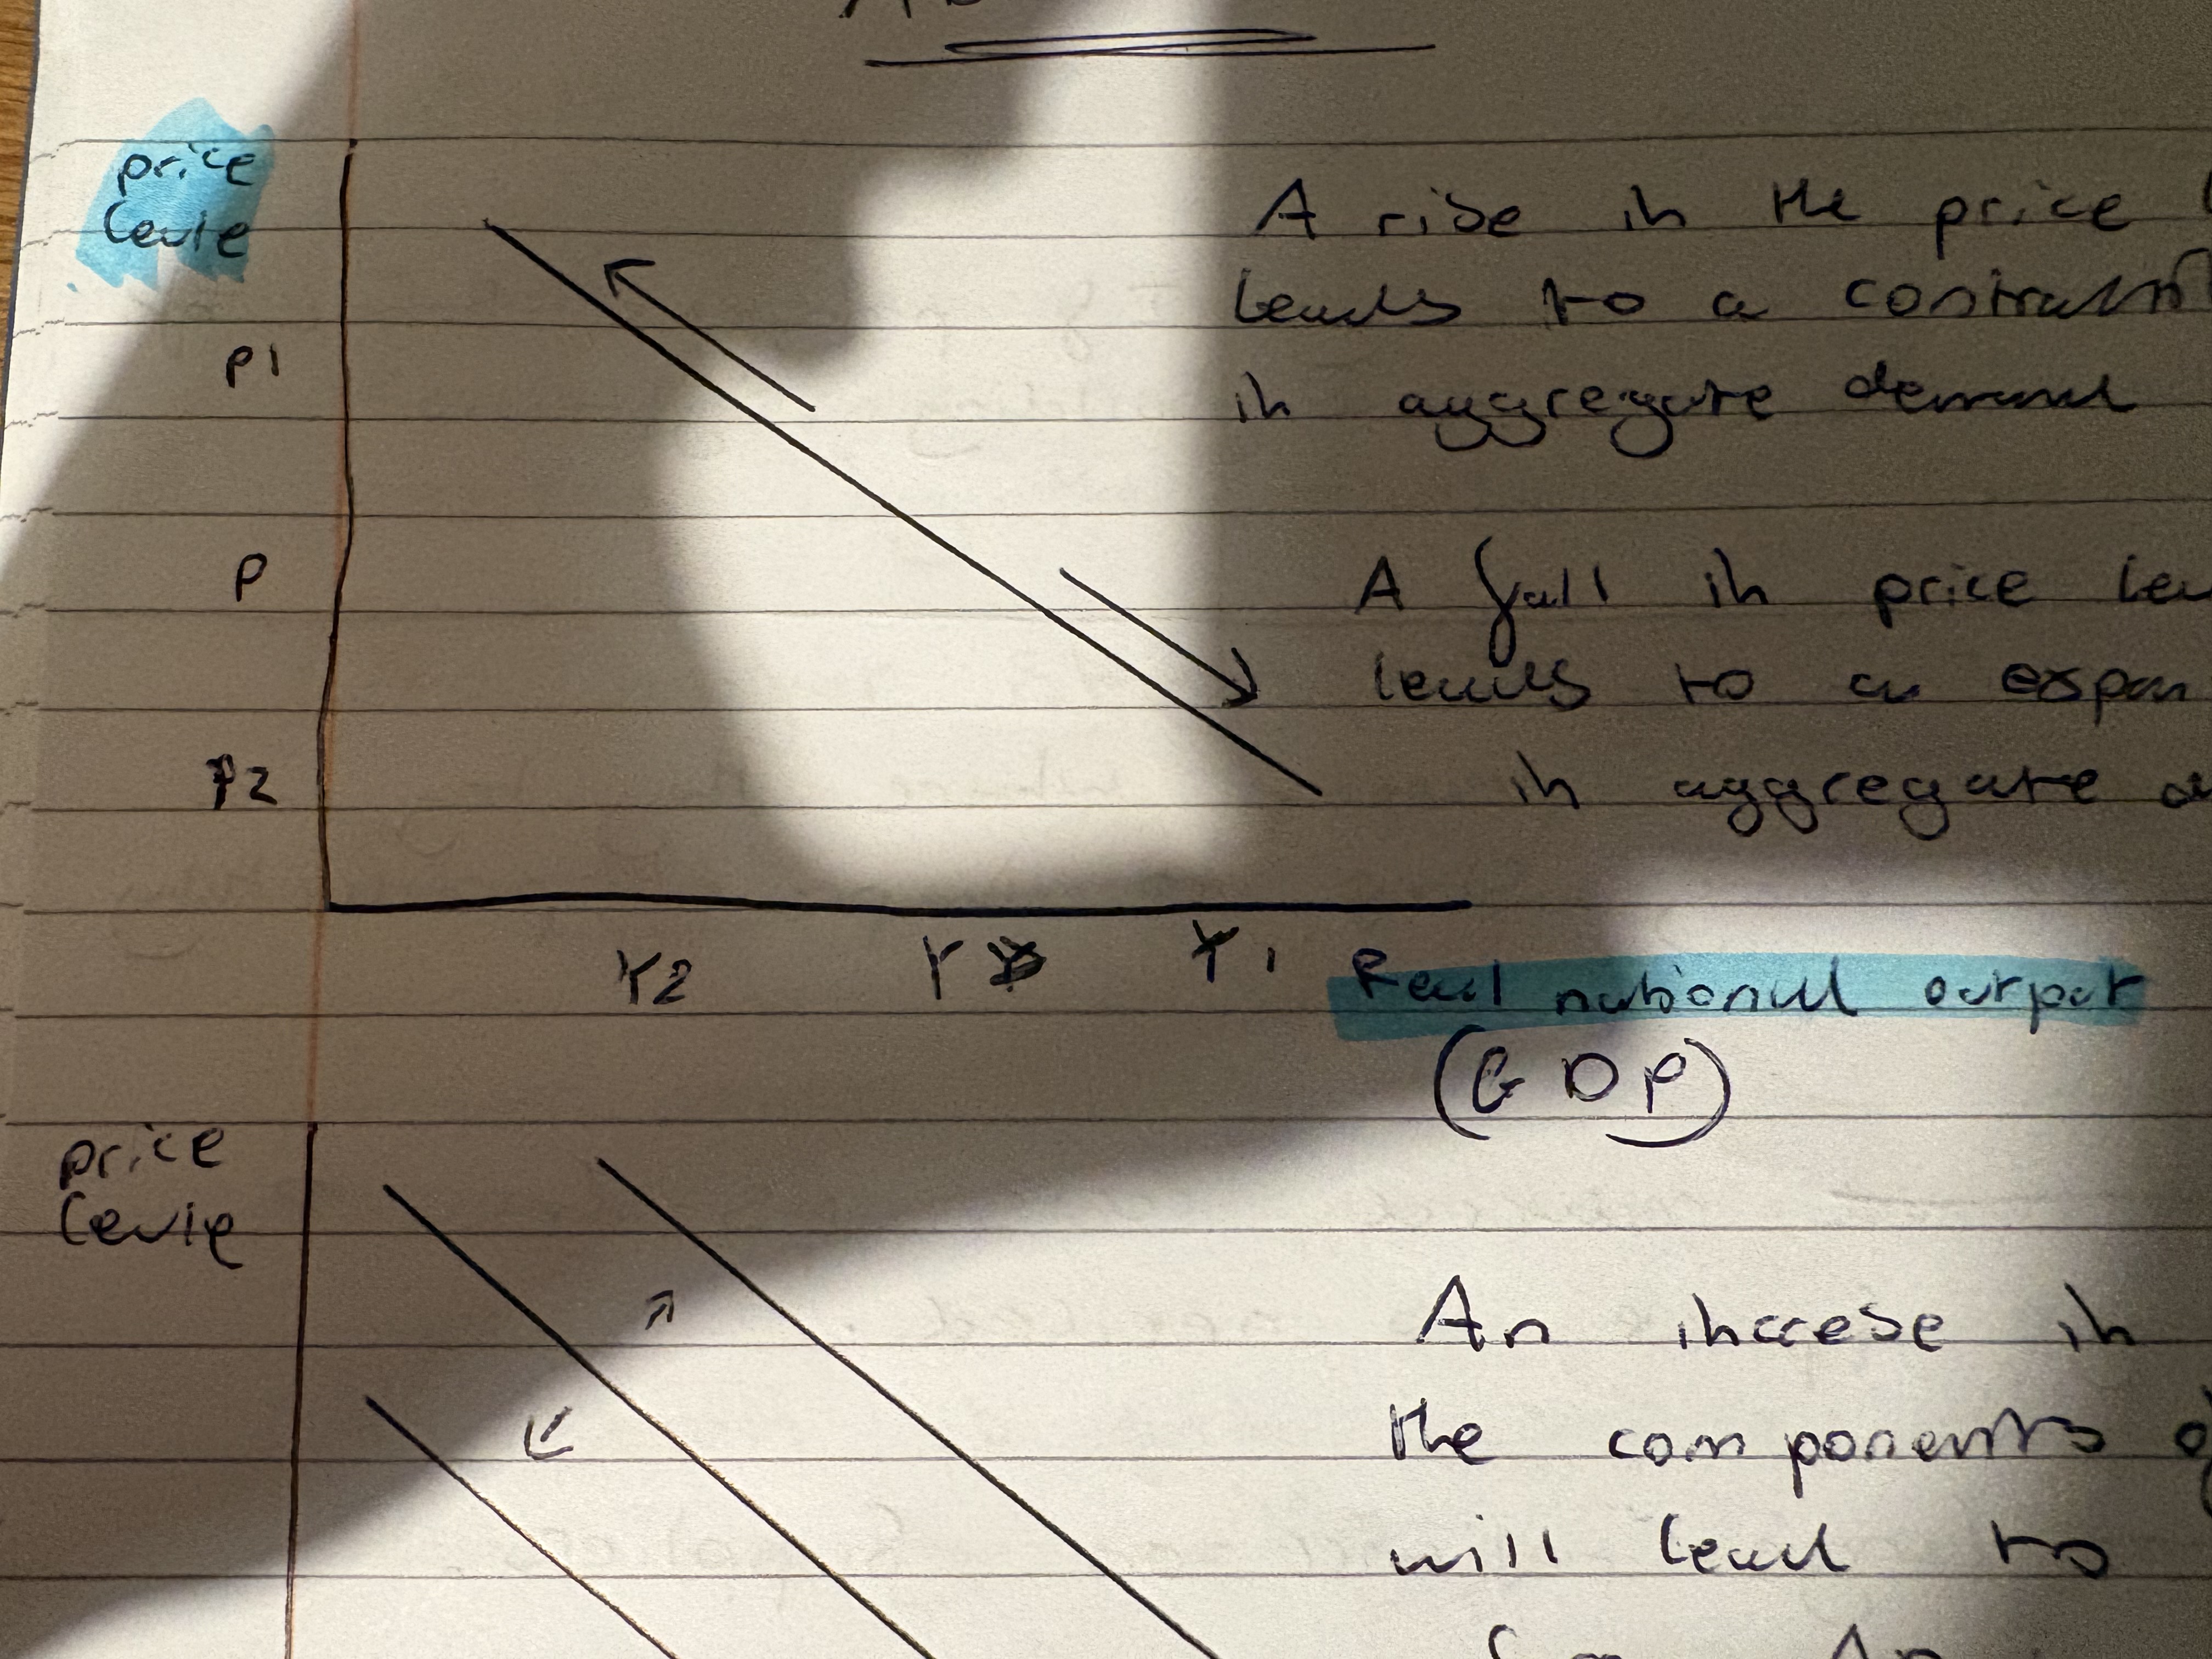 price
Levle
A rise in the price
leads to a contraction
in aggregate demand
P1
P
A fall in price
leads to a expan
in aggregate
P2
Y2 Y Y1 Real national output
(GDP)
price
Levle
An increse in
the components
will lead to